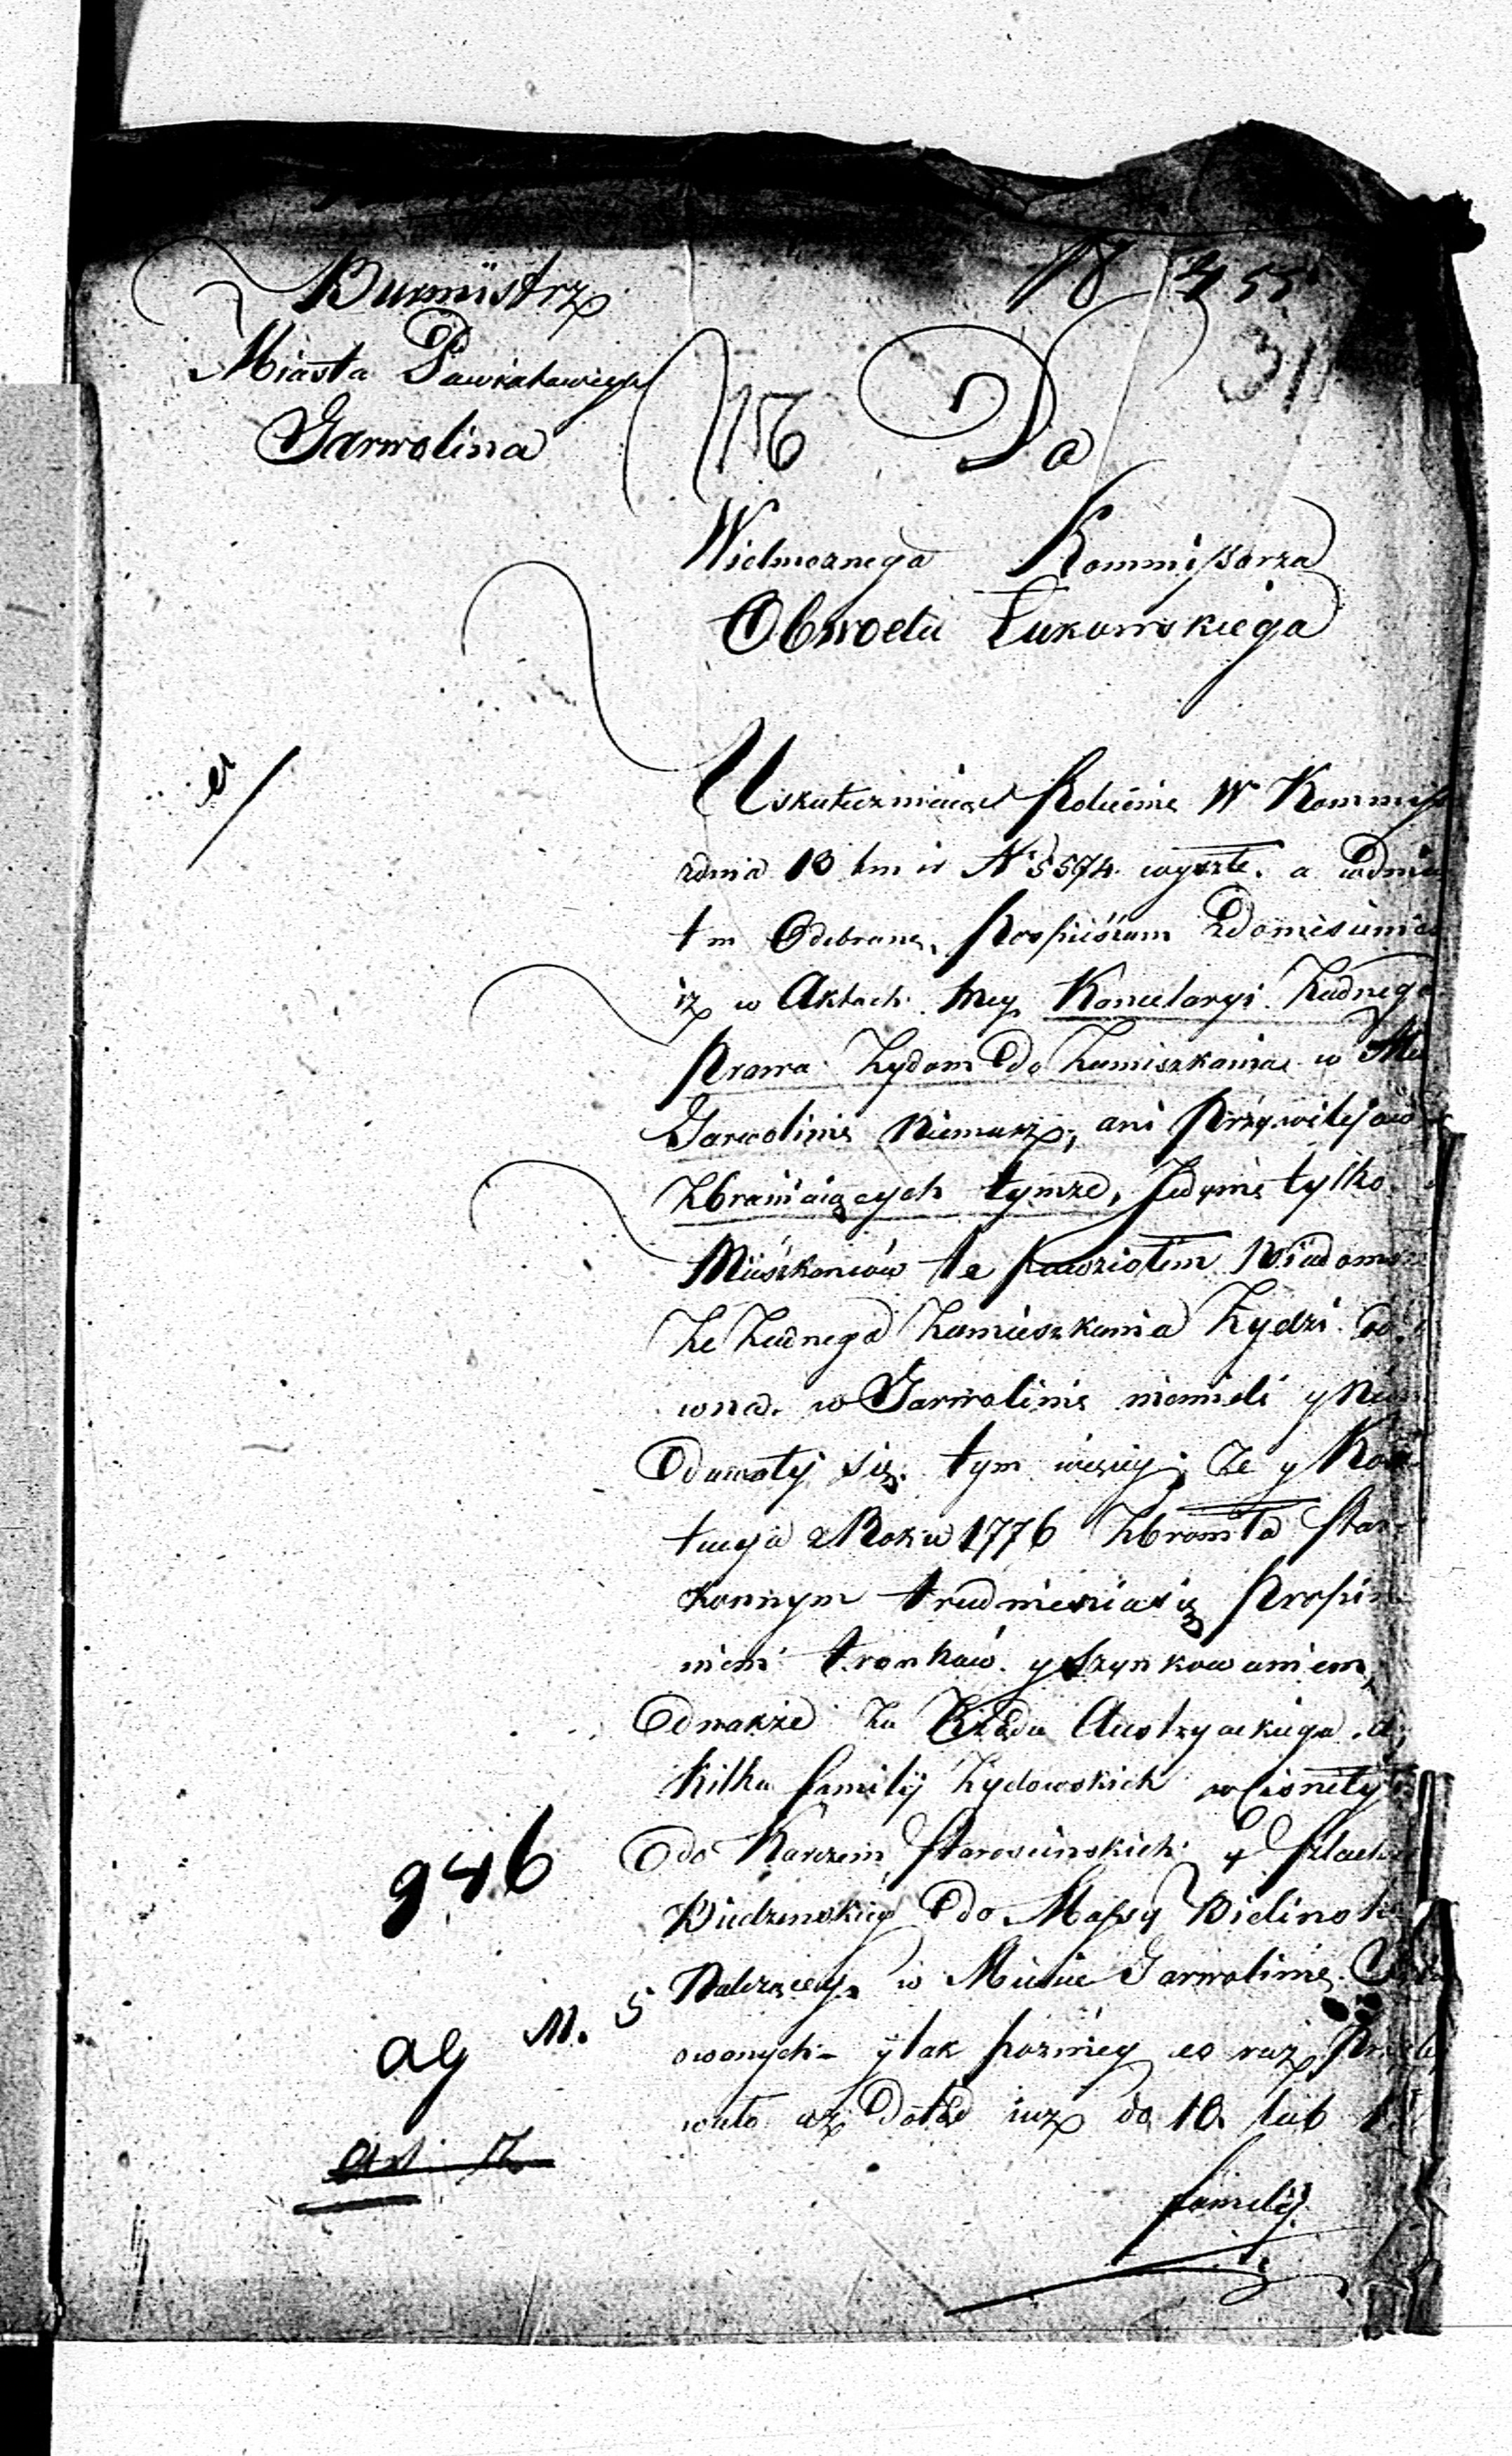 Burmistrz
Miasta Powiatowego
Garwolina
311
Do
Wielmożnego Kommissarza
Obwodu Łukowskiego
Uskuteczniaiąc Polecenie W Kommiss
zdnia 13 tm ir N 5574 wyszłe. a wdniu
tm Odebrane, Pospieszam Zdoniesieniem
iż w Aktach tutey Kancelaryi Żadnego
Prawa Żydom Do Zamieszkania w Mie
Garwolinie Niemasz, ani Przywilejów
Zbraniaiących tymże, Jedynie tylko
Mieszkanców te powziołem Wiadomo
Że Żadnego Zamieszkania Żydzi
wna. w Garwolinie niemieli y
tym więcy, Że y Kon
tucya z Roku 1776 Zbroniła Star
konnym trudnienia się Propin
niem tronków y Szynkowaniem,
Odnakże Za Rządu Austryackiego
Kilka familij Żydowskich wcisneły
do Karczem Starościńskich y Szlache
Do Massy Bielinsk
Należącey, w Mieście Garwolinie
owanych - y tak pózniey co raz
wało aż Dotąd iuż do 10 lub
familij
946
ag M. 5